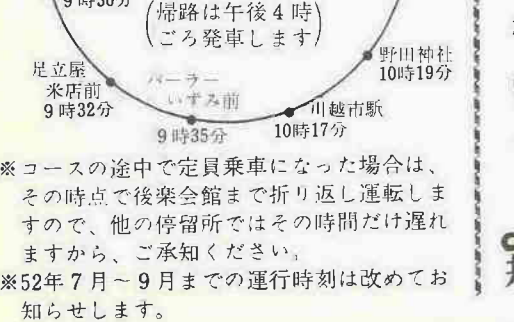 9時30分
(帰路は午後4時
ごろ発車します)
足立屋
米店前
9時32分
パーラー
いずみ前
9時35分
川越市駅
10時17分
野田神社
10時19分
※コースの途中で定員乗車になった場合は、
その時点で後楽会館まで折り返し運転しま
すので、他の停留所ではその時間だけ遅れ
ますから、ご承知ください。
※52年7月〜9月までの運行時刻は改めてお
知らせします。